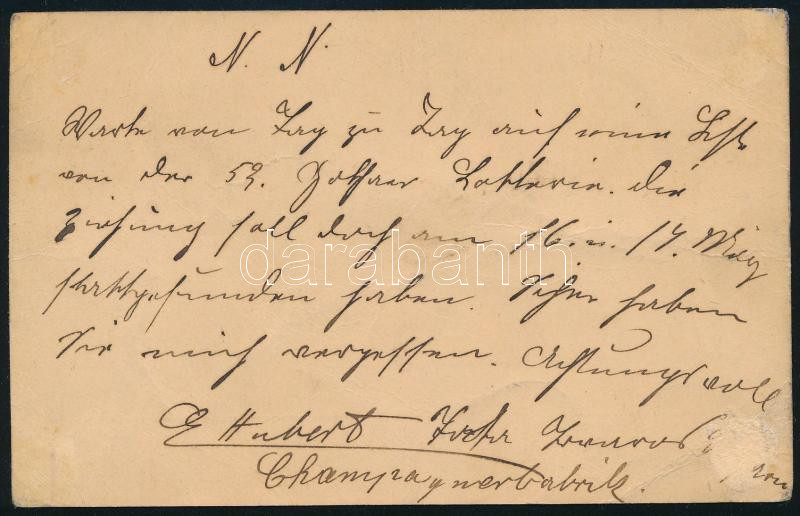 N. N.
Warte von Tag zu Tag auf eine Liste
von der 52. Gothaer Lotterie. die
Ziehung soll doch am 16. u. 17. März
stattgefunden haben. Sicher haben
Sie mich vergessen. Achtungsvoll
E Hubert
Champagnerfabrik.
darabanth